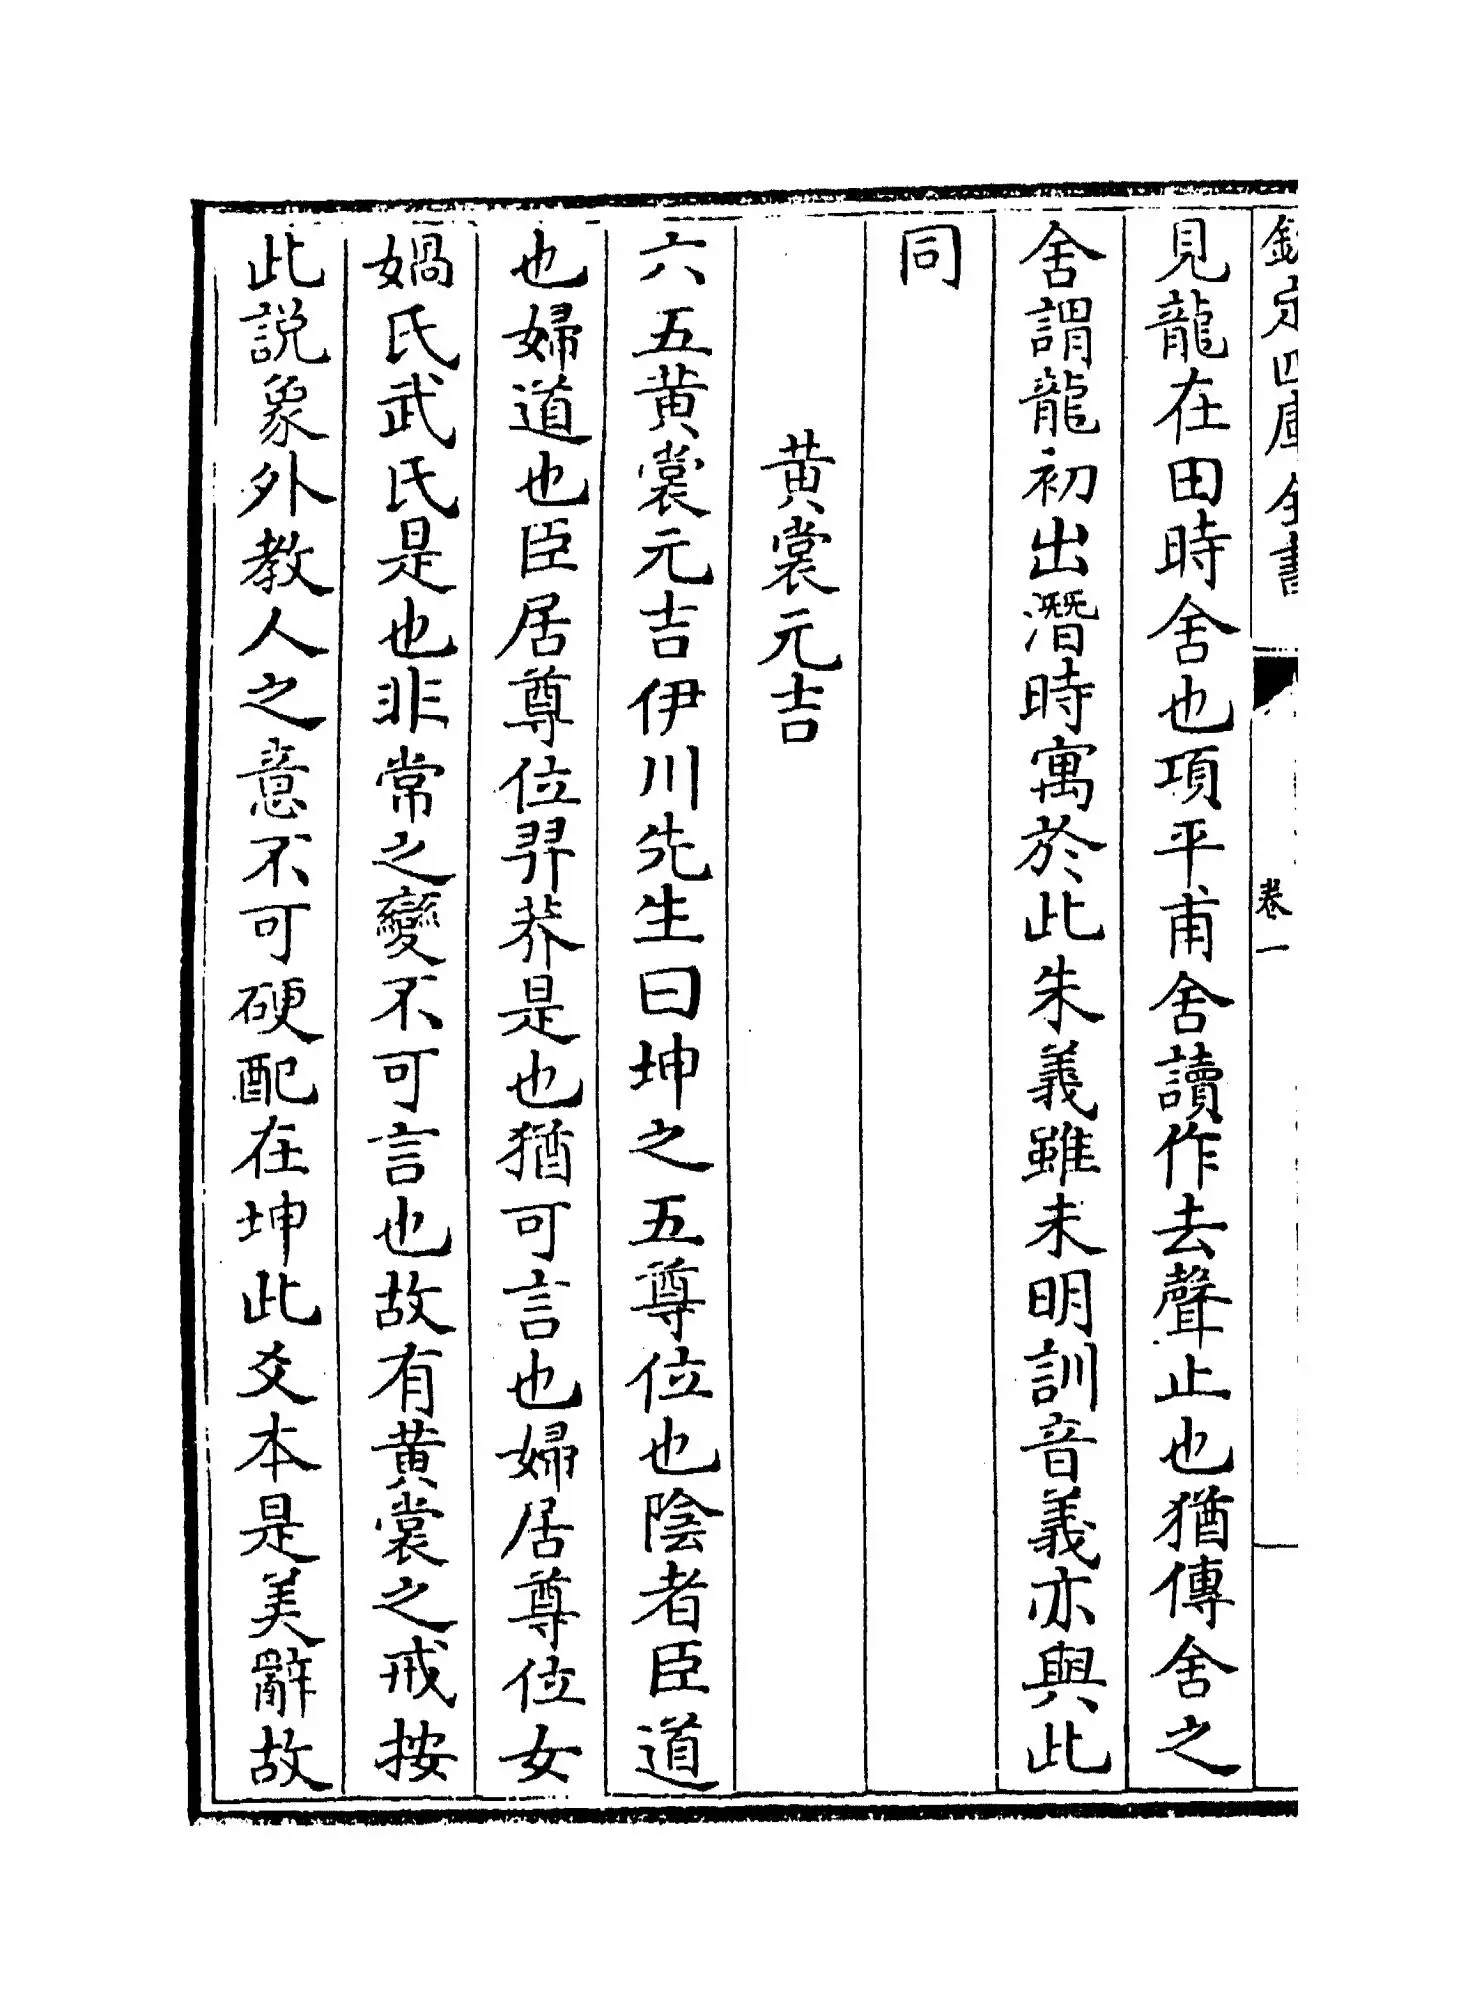 欽定四庫全書
卷一
見龍在田時舍也項平甫舍讀作去聲止也猶傳舍之
舍謂龍初出潛時寓於此朱義雖未明訓音義亦與此
同
黄裳元吉
六五黄裳元吉伊川先生曰坤之五尊位也陰者臣道
也婦道也臣居尊位羿莽是也猶可言也婦居尊位女
媧氏武氏是也非常之變不可言也故有黄裳之戒按
此説象外教人之意不可硬配在坤此爻本是美辭故